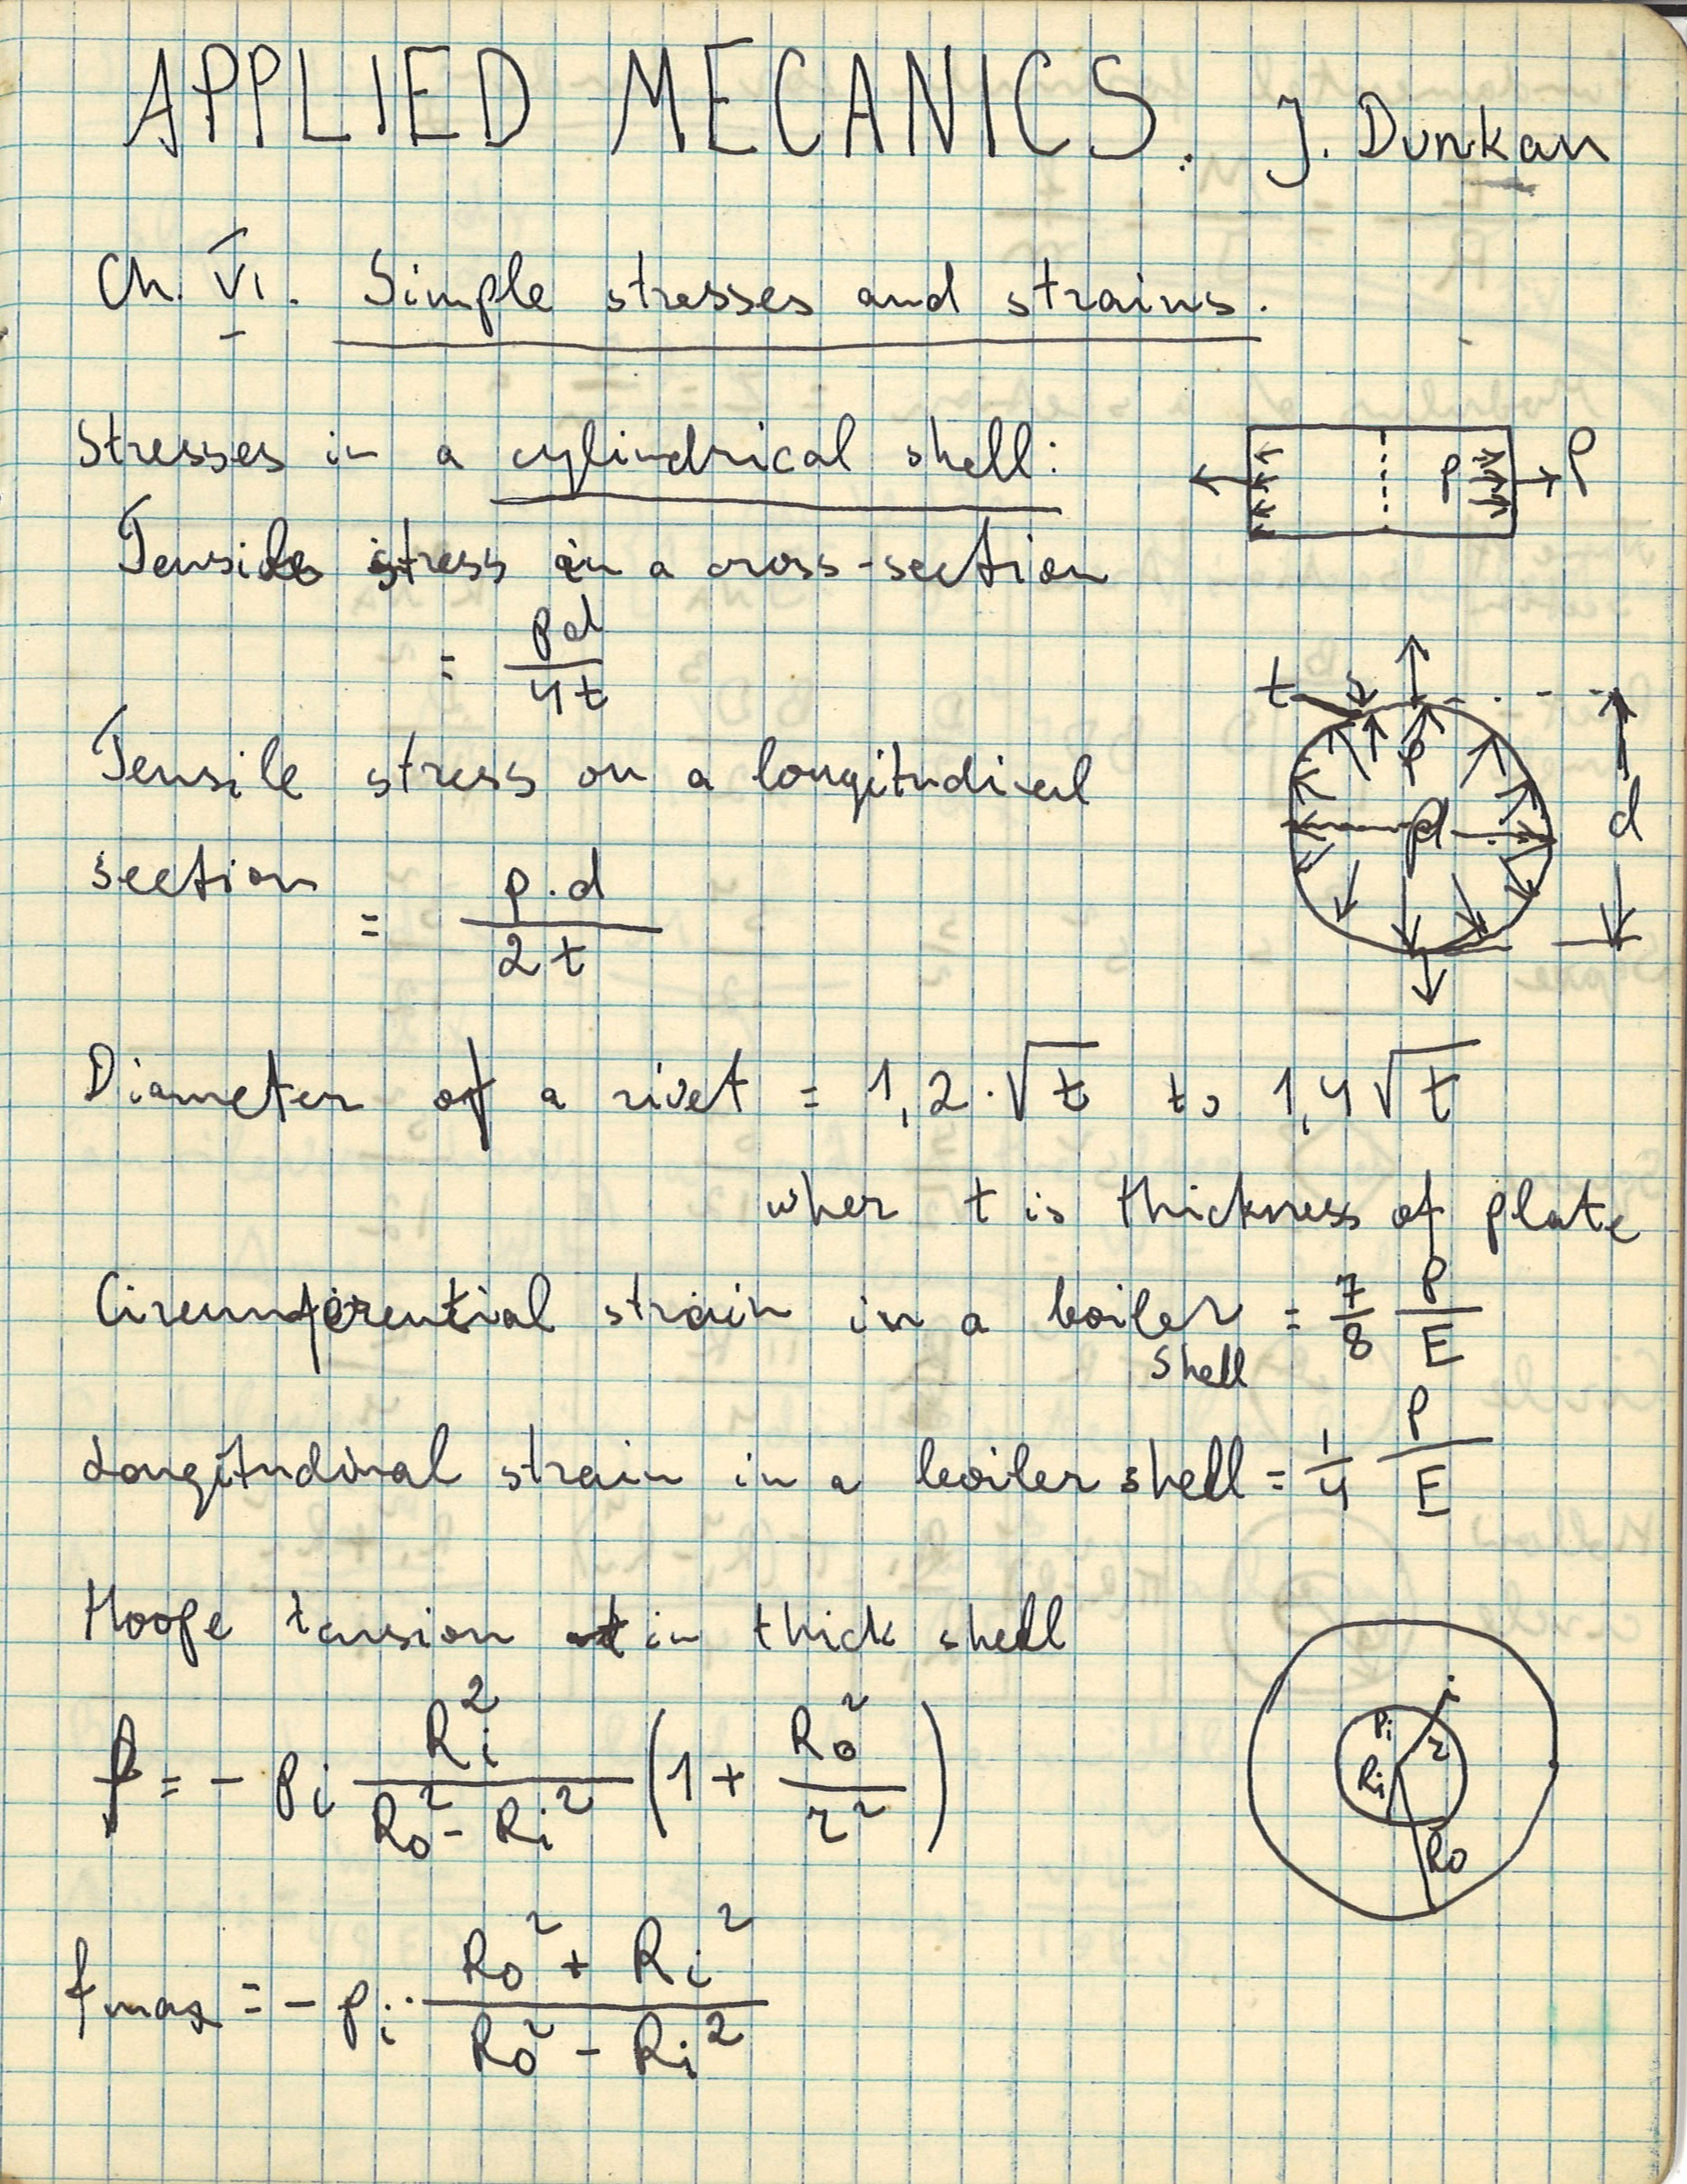 APPLIED MECANICS. J. Dunkan
Ch. VI. Simple stresses and strains.
Stresses in a cylindrical shell:
p P
Tensile stress in a cross-section
= pd / 4t
t p d d
Tensile stress on a longitudinal
section = p·d / 2t
Diameter of a rivet = 1,2·√t to 1,4√t
wher t is thickness of plate
Circumferential strain in a boiler = 7/8 P/E
shell
Longitudinal strain in a boiler shell = 1/4 P/E
Hoope tension in thick shell
f = - pi Ri² / (Ro² - Ri²) (1 + Ro² / r²)
pi r Ri Ro
fmax = - pi · (Ro² + Ri²) / (Ro² - Ri²)